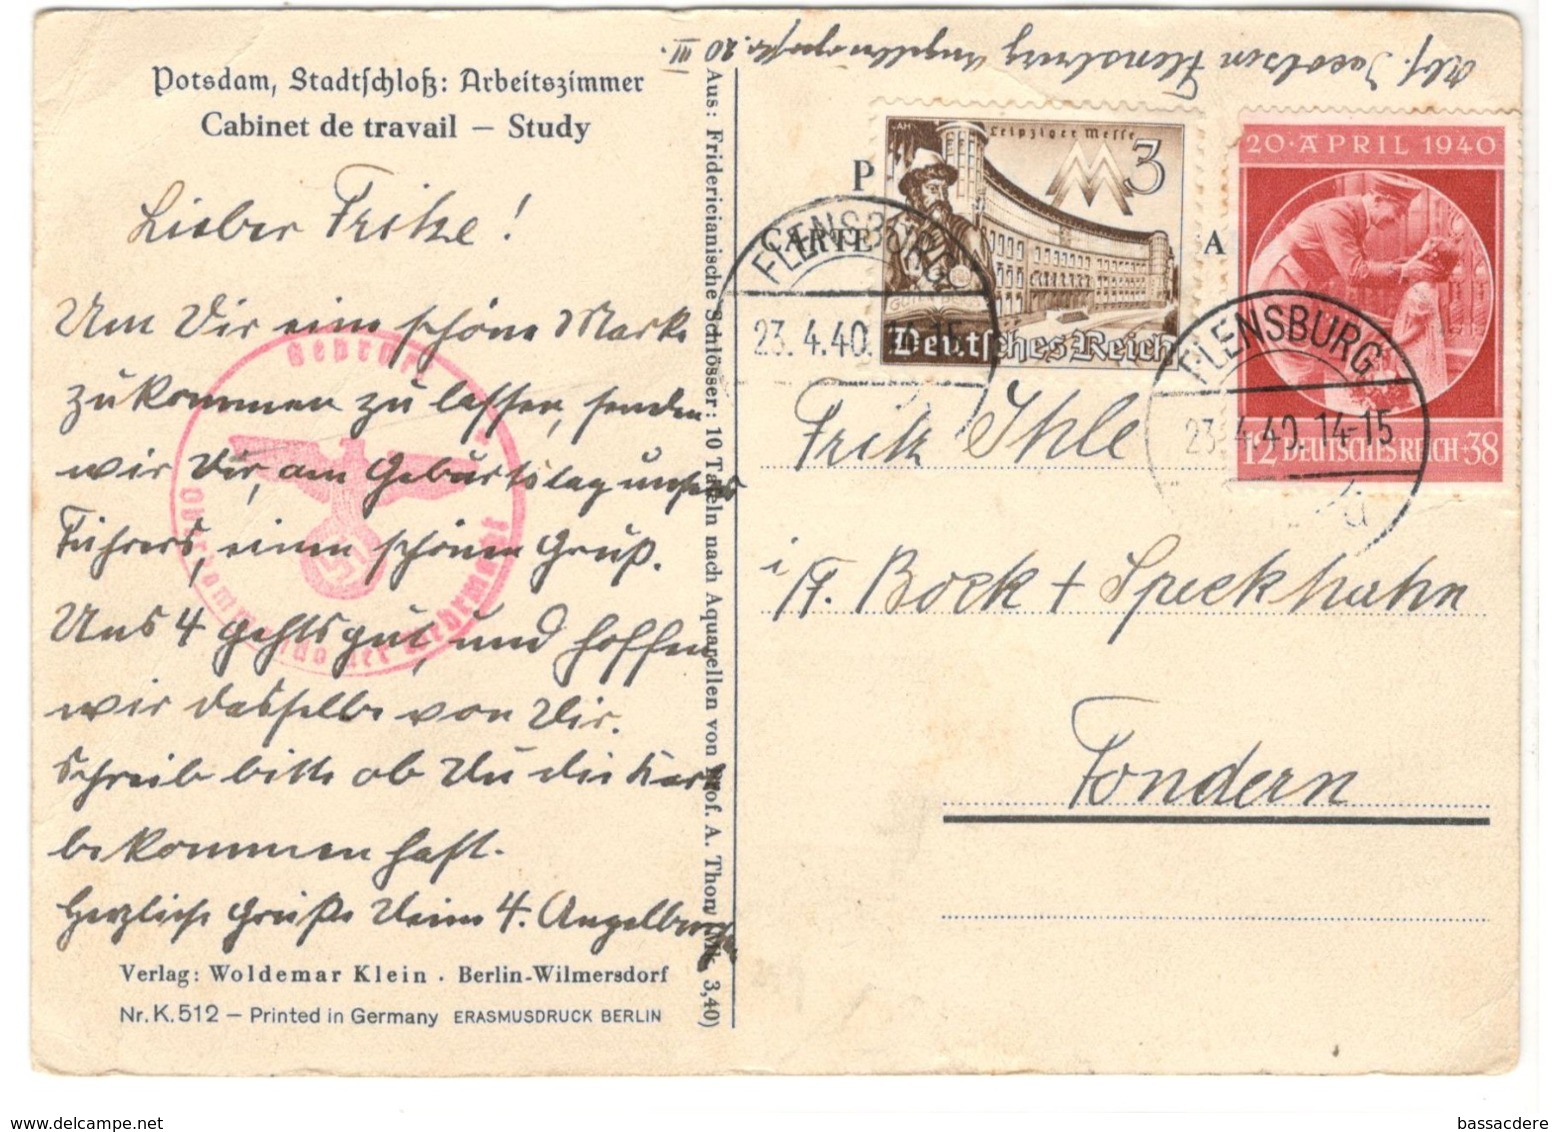 Potsdam, Stadtschloß: Arbeitszimmer
Cabinet de travail – Study
Lieber Fritze!
Um Dir eine schöne Marke
zukommen zu lassen, senden
wir Dir, am Geburtstag unseres
Führers, einen schönen Gruß.
Uns 4 gehts gut, und hoffen
wir dasselbe von Dir.
Schreib bitte ob Du die Karte
bekommen hast.
Herzliche Grüße Deine 4. Angelburger
Verlag: Woldemar Klein · Berlin-Wilmersdorf
Nr. K. 512 – Printed in Germany ERASMUSDRUCK BERLIN
Geprüft
Oberkommando der Wehrmacht
Aus: Fridericianische Schlösser: 10 Tafeln nach Aquarellen von Prof. A. Thon, Mk. 3,40)
Abs. Jacobsen Flensburg Angelburgerstr. 20 III.
P
CARTE
A
Leipziger Messe
3
GUTENBERG
Deutsches Reich
20·APRIL 1940
12 DEUTSCHES REICH +38
FLENSBURG
23.4.40. 14-15
FLENSBURG
23.4.40. 14-15
Fritz Ihle
i/F. Bock + Speckhahn
Tondern
www.delcampe.net
bassacdere